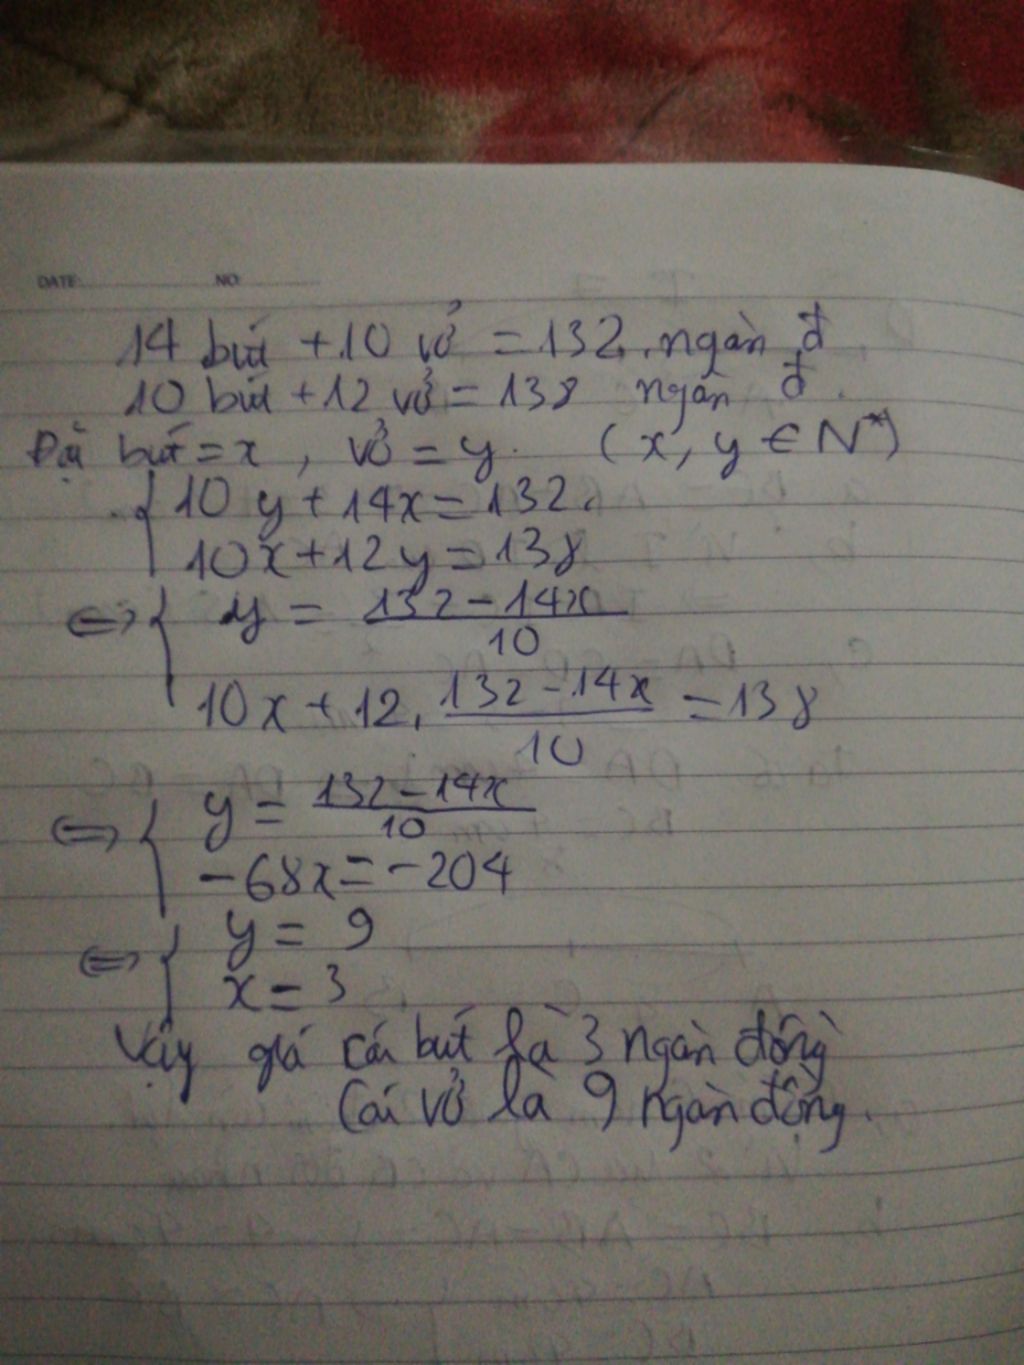 DATE: NO:
14 bút + 10 vở = 132 ngàn đ
10 bút + 12 vở = 138 ngàn đ.
Đặt bút = x, vở = y. (x, y ∈ N*)
{ 10y + 14x = 132
10x + 12y = 138
⇔ { y = (132 - 14x)/10
10x + 12. (132 - 14x)/10 = 138
⇔ { y = (132 - 14x)/10
-68x = -204
⇔ { y = 9
x = 3
Vậy giá cái bút là 3 ngàn đồng
Cái vở là 9 ngàn đồng.